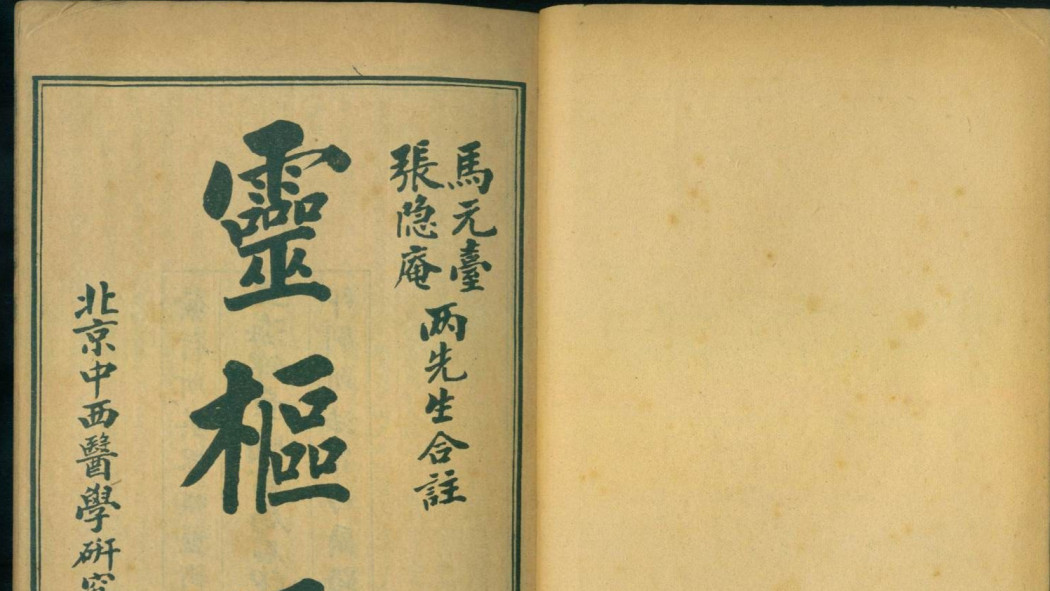 馬元臺
張隐庵
两先生合註
靈樞
北京中西醫學研究